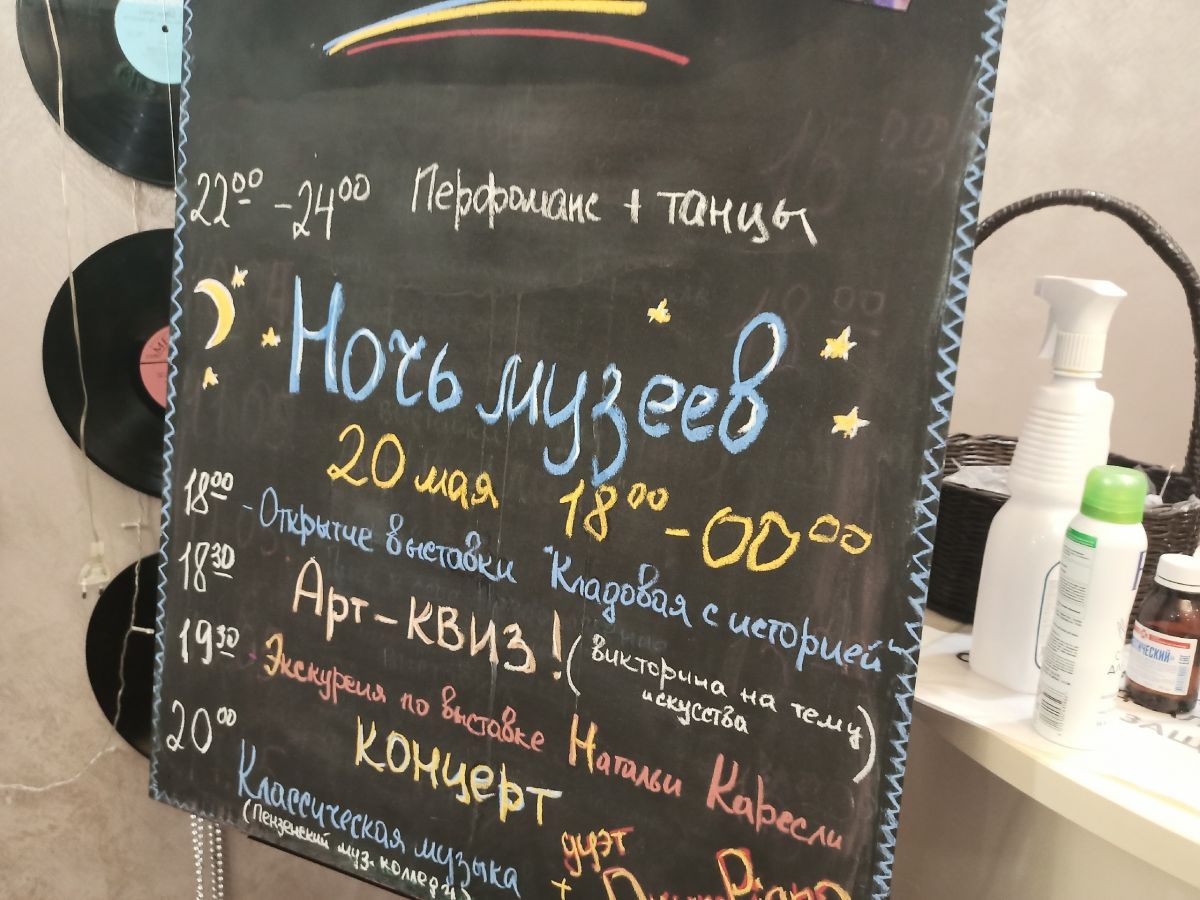 22 00 - 24 00 Перфоманс + танцы
Ночь музеев
20 мая 18 00 - 00 00
18 00 - Открытие выставки "Кладовая с историей"
18 30 Арт-квиз! (викторина на тему искусства)
19 30 - Экскурсия по выставке Натальи Каресли
20 00 концерт
Классическая музыка
(Пензенский муз. колледж)
+ дуэт